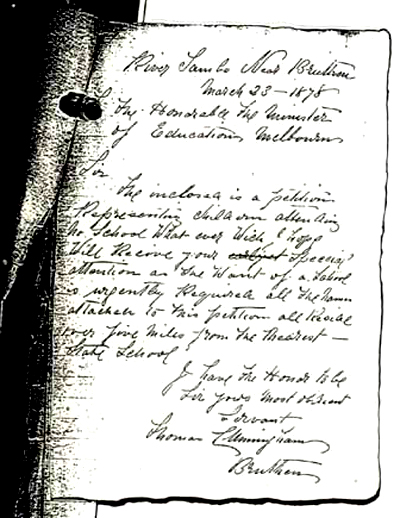 River Tambo Near Bruthen
March 23 - 1878
To The Honorable The Minister
of Education, Melbourn
Sir
The inclosed is a petition
Representing Children attending
no School What ever Wich I hope
Will Receive your Special
attention as The Want of a School
is urgently Required all The Names
attached to This petition all Reside
over five Miles from The Nearest -
State School
I have The Honor to be
Sir yours most obident
Servant
Thomas Cunningham
Bruthen